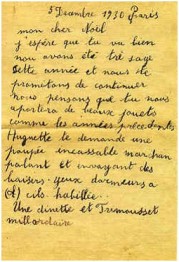 5 Decembre 1930 Paris
mon cher Noël
j'espère que tu va bien
nou avons été tré sage
cette année et nous te
prometons de continuer
nous pensons que tu nous
aportera de beaux jouets
comme les années précédentes
Huguette te demande une
poupée incassable marchan
palant et envoyant des
baisers. yeux dormeurs a
cils. habillée.
Une dinette et Trimousset